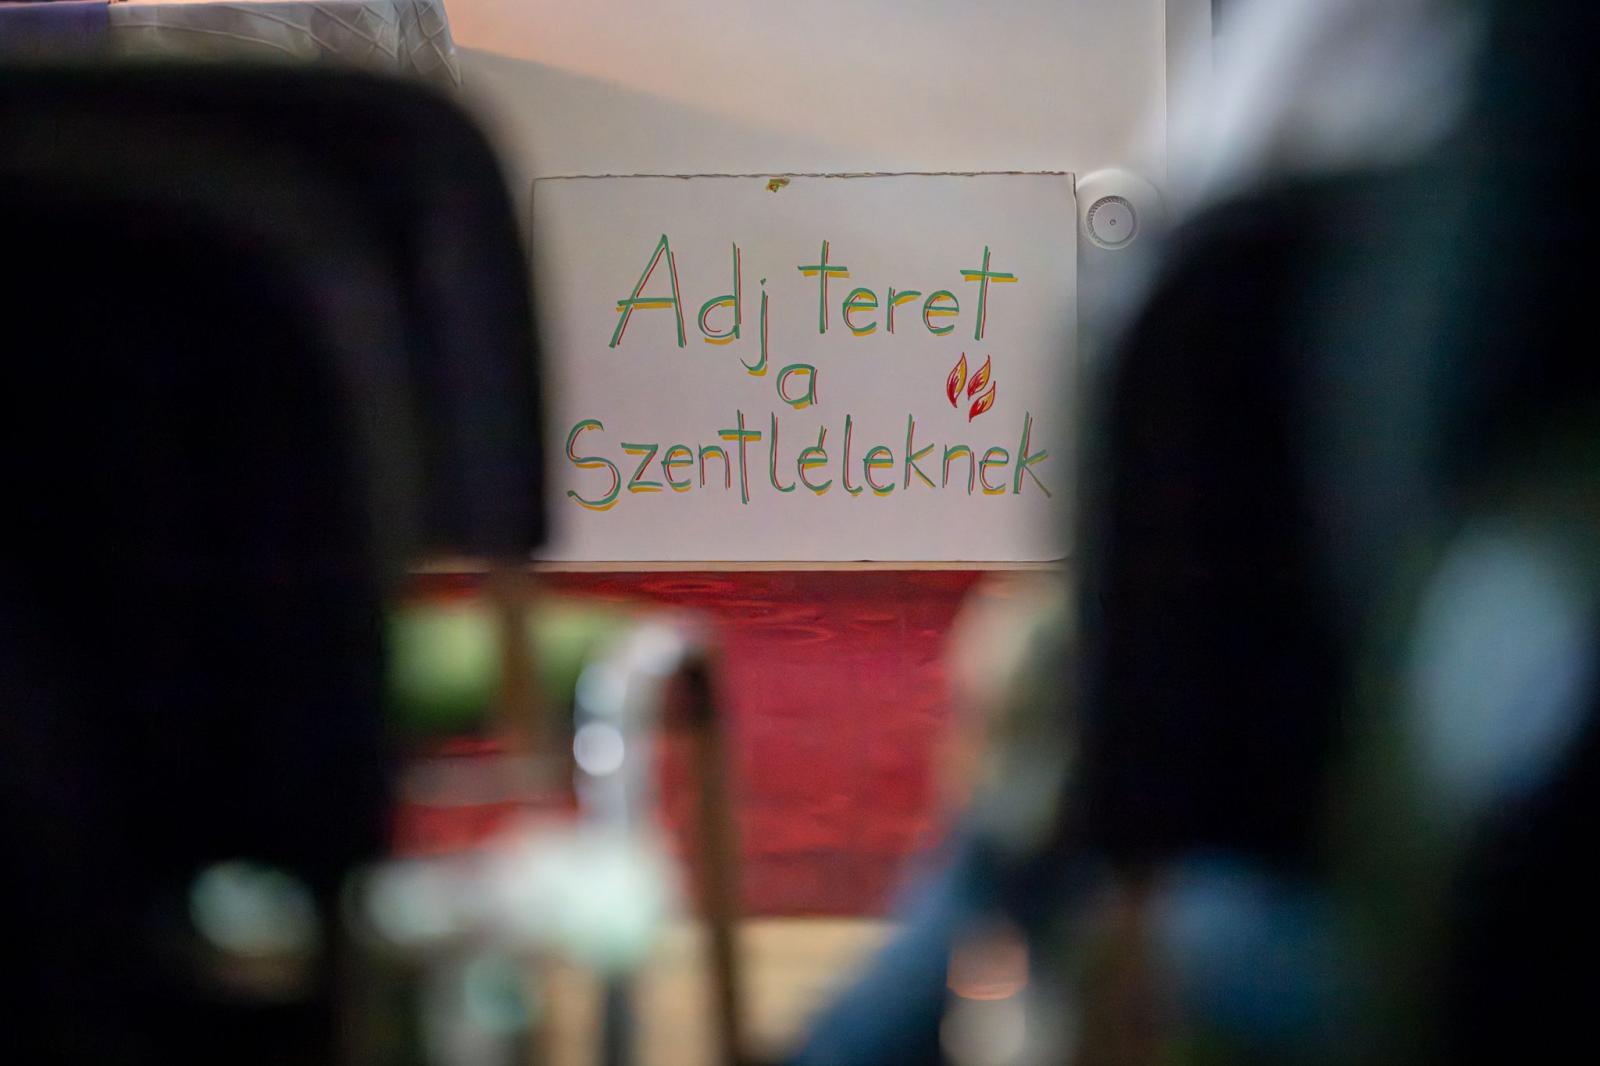 Adj teret
a
Szentléleknek